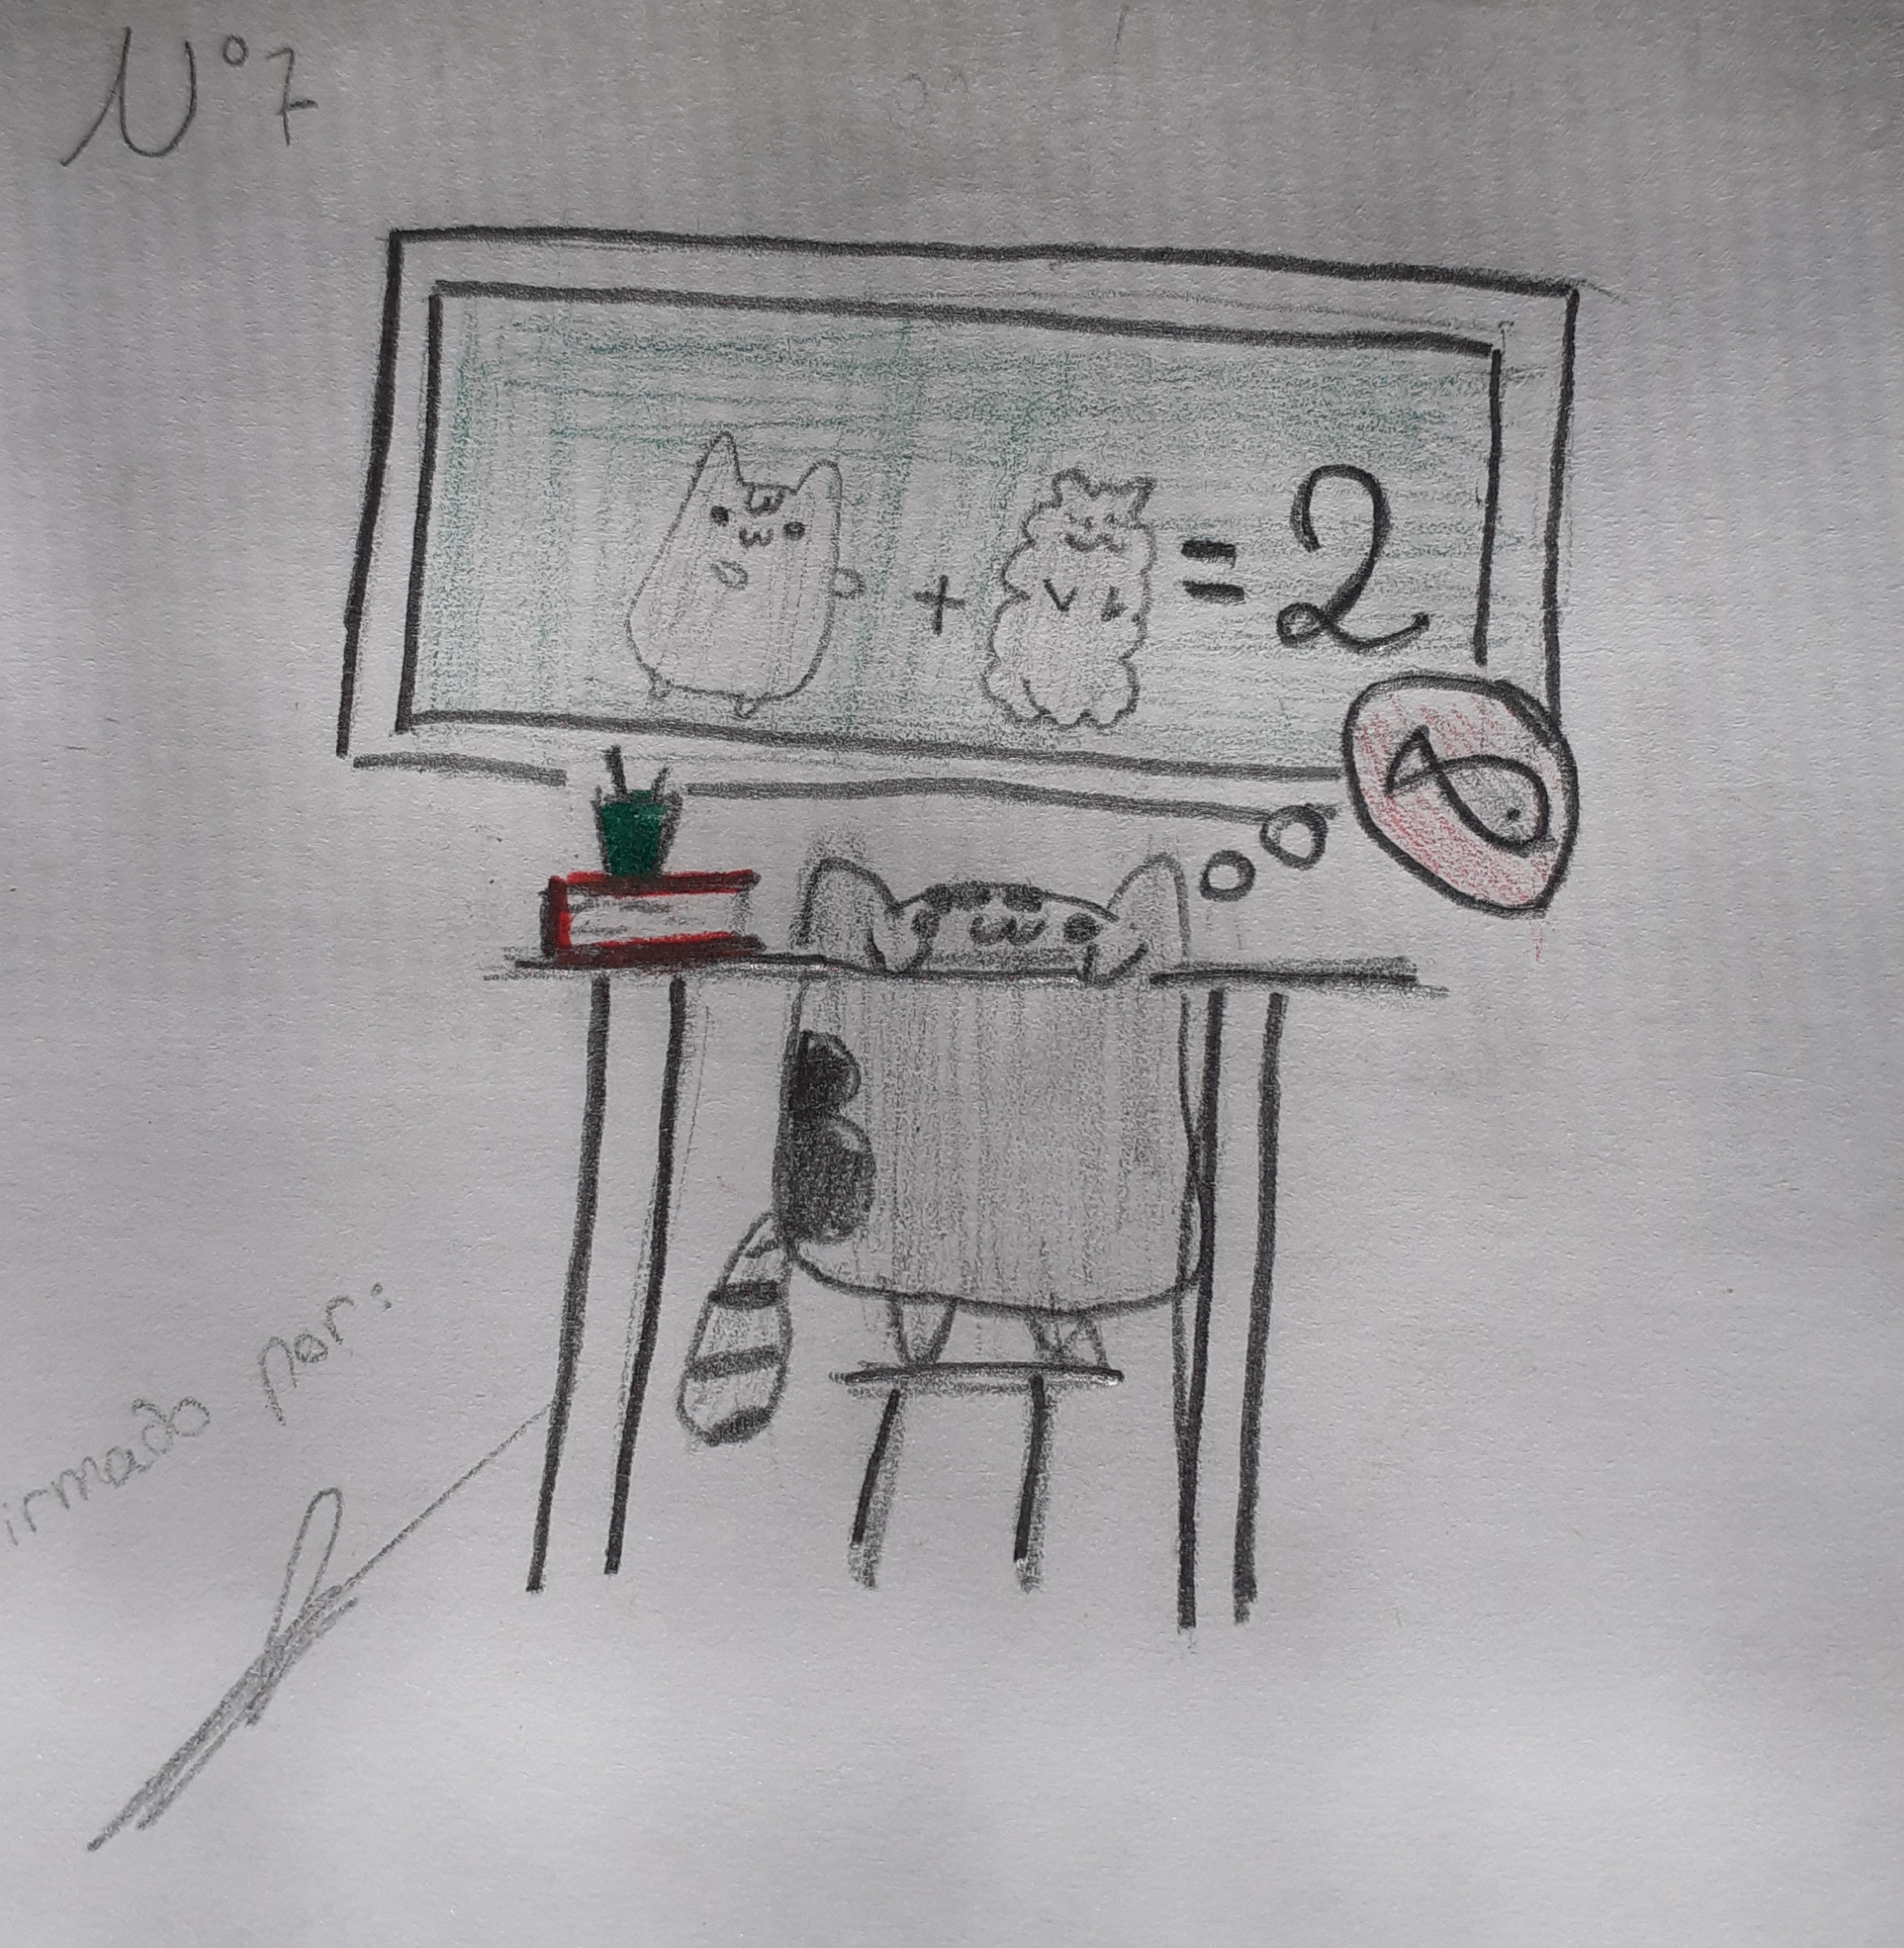 N°7
+ = 2
irmado por: